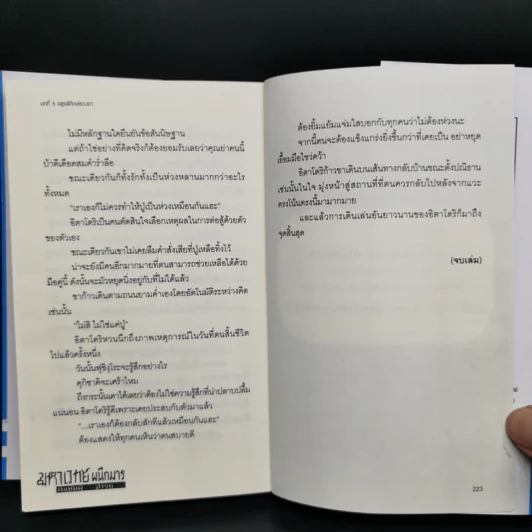 บทที่ 5 อสูรพิทักษ์คะชา
ไม่มีหลักฐานใดยืนยันข้อสันนิษฐาน
แต่ถ้าใช่อย่างที่คิดจริงก็ต้องยอมรับเลยว่าคุณย่าคนนี้
บ้าดีเดือดสมคำร่ำลือ
ขณะเดียวกันก็ทั้งรักทั้งเป็นห่วงหลานมากกว่าอะไร
ทั้งหมด
"เราเองก็ไม่ควรทำให้ปู่เป็นห่วงเหมือนกันแฮะ"
อิตาโดริเป็นคนตัดสินใจเลือกเหตุผลในการต่อสู้ด้วยตัว
ของตัวเอง
ขณะเดียวกันเขาไม่เคยลืมคำสั่งเสียที่ปู่เหลือทิ้งไว้
น่าจะยังมีคนอีกมากมายที่ตนสามารถช่วยเหลือได้ด้วย
มือคู่นี้ ดังนั้นจะมัวหยุดนิ่งอยู่กับที่ไม่ได้แล้ว
ขาก้าวเดินตามถนนยามค่ำเองโดยอัตโนมัติระหว่างคิด
เช่นนั้น
"ไม่สิ ไม่ใช่แค่ปู่"
อิตาโดริหวนนึกถึงภาพเหตุการณ์ในวันที่ตนสิ้นชีวิต
ไปแล้วครั้งหนึ่ง
วันนั้นฟุชิงุโระจะรู้สึกอย่างไร
คุกิซากิจะเศร้าไหม
ถึงกระนั้นเดาได้เลยว่าต้องไม่ใช่ความรู้สึกที่น่าปลาบปลื้ม
แน่นอน อิตาโดริรู้ดีเพราะเคยประสบกับตัวมาแล้ว
"...เราเองก็ต้องกลับสักทีแล้วเหมือนกันแฮะ"
ต้องแสดงให้ทุกคนเห็นว่าตนสบายดี
มหาเวทย์ผนึกมาร
ต้องยิ้มแย้มแจ่มใสบอกกับทุกคนว่าไม่ต้องห่วงนะ
จากนี้ตนจะต้องแข็งแกร่งยิ่งขึ้นกว่าที่เคยเป็น อย่าหยุด
เอื้อมมือไขว่คว้า
อิตาโดริก้าวขาเดินบนเส้นทางกลับบ้านขณะตั้งปณิธาน
เช่นนั้นในใจ มุ่งหน้าสู่สถานที่ที่ตนควรกลับไปหลังจากแวะ
ตรงโน้นตรงนี้มามากมาย
และแล้วการเดินเล่นอันยาวนานของอิตาโดริก็มาถึง
จุดสิ้นสุด
(จบเล่ม)
223